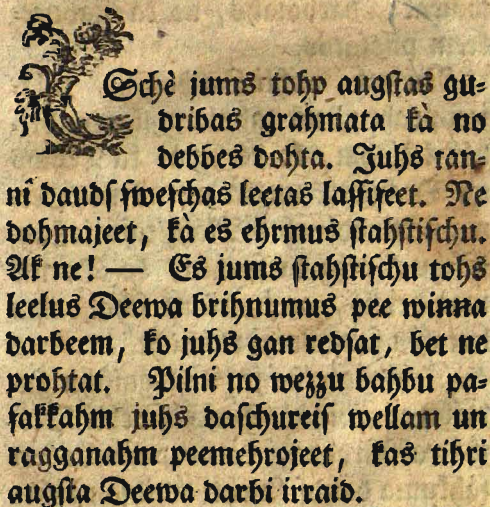 Schè jums tohp augstas gu-
dribas grahmata kà no
debbes dohta. Juhs ran-
ni daudſ ſweſchas leetas laſſiſeet. Ne
dohmajeet, kà es ehrmus ſtahſtiſchu.
Ak ne! — Es jums ſtahſtiſchu tohs
leelus Deewa brihnumus pee winna
darbeem, ko juhs gan redſat, bet ne
prohtat. Pilni no wezzu bahbu pa-
ſakkahm juhs daſchureiſ wellam un
ragganahm peemehrojeet, kas tihri
augſta Deewa darbi irraid.